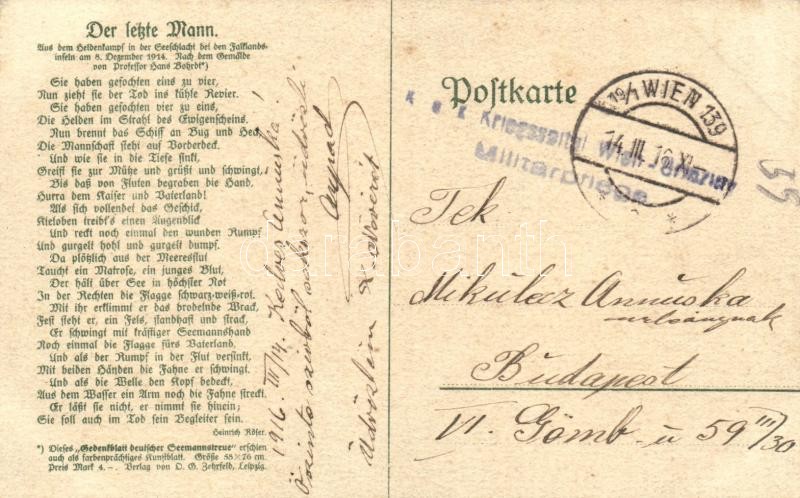 Der letzte Mann.
Aus dem Heldenkampf in der Seeschlacht bei den Falklands-
inseln am 8. Dezember 1914. Nach dem Gemälde
von Professor Hans Bohrdt*)
Sie haben gefochten eins zu vier,
Nun zieht sie der Tod ins kühle Revier.
Sie haben gefochten vier zu eins,
Die Helden im Strahl des Ewigenscheins.
Nun brennt das Schiff an Bug und Heck,
Die Mannschaft steht auf Vorderdeck.
Und wie sie in die Tiefe sinkt,
Greift sie zur Mütze und grüßt und schwingt,
Bis daß von Fluten begraben die Hand,
Hurra dem Kaiser und Vaterland!
Als sich vollendet das Geschick,
Kieloben treibt's einen Augenblick
Und reckt noch einmal den wunden Rumpf
Und gurgelt hohl und gurgelt dumpf.
Da plötzlich aus der Meeresflut
Taucht ein Matrose, ein junges Blut,
Der hält über See in höchster Not
In der Rechten die Flagge schwarz-weiß-rot.
Mit ihr erklimmt er das brodelnde Wrack,
Fest steht er, ein Fels, standhaft und strack,
Er schwingt mit kräftiger Seemannshand
Noch einmal die Flagge fürs Vaterland.
Und als der Rumpf in der Flut versinkt,
Mit beiden Händen die Fahne er schwingt.
Und als die Welle den Kopf bedeckt,
Aus dem Wasser ein Arm noch die Fahne streckt.
Er läßt sie nicht, er nimmt sie hinein;
Sie soll auch im Tod sein Begleiter sein.
Heinrich Röser.
*) Dieses „Gedenkblatt deutscher Seemannstreue" erschien
auch als farbenprächtiges Kunstblatt. Größe 58×76 cm.
Preis Mark 4.–. Verlag von D. G. Zehrfeld, Leipzig.
1916. III/14. Kedves Annuska!
Őszinte szívből
Üdvözlöm
Postkarte
19/1 WIEN 139
14. III. 16 XI
K u K Kriegsspital Wien-Grinzing
Militärpflege
35
Tek
Mikulecz Annuska
Budapest
VI. Gömb u 59 III/30
darabanth